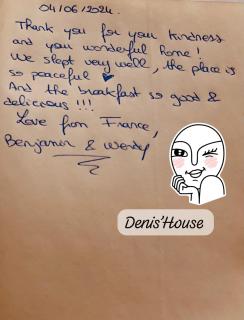 04/06/2024.
Thank you for your kindness
and your wonderful home!
We slept very well, the place is
so peaceful
And the breakfast so good &
delicious !!!
Love from France,
Benjamin & Wendy
Denis'House